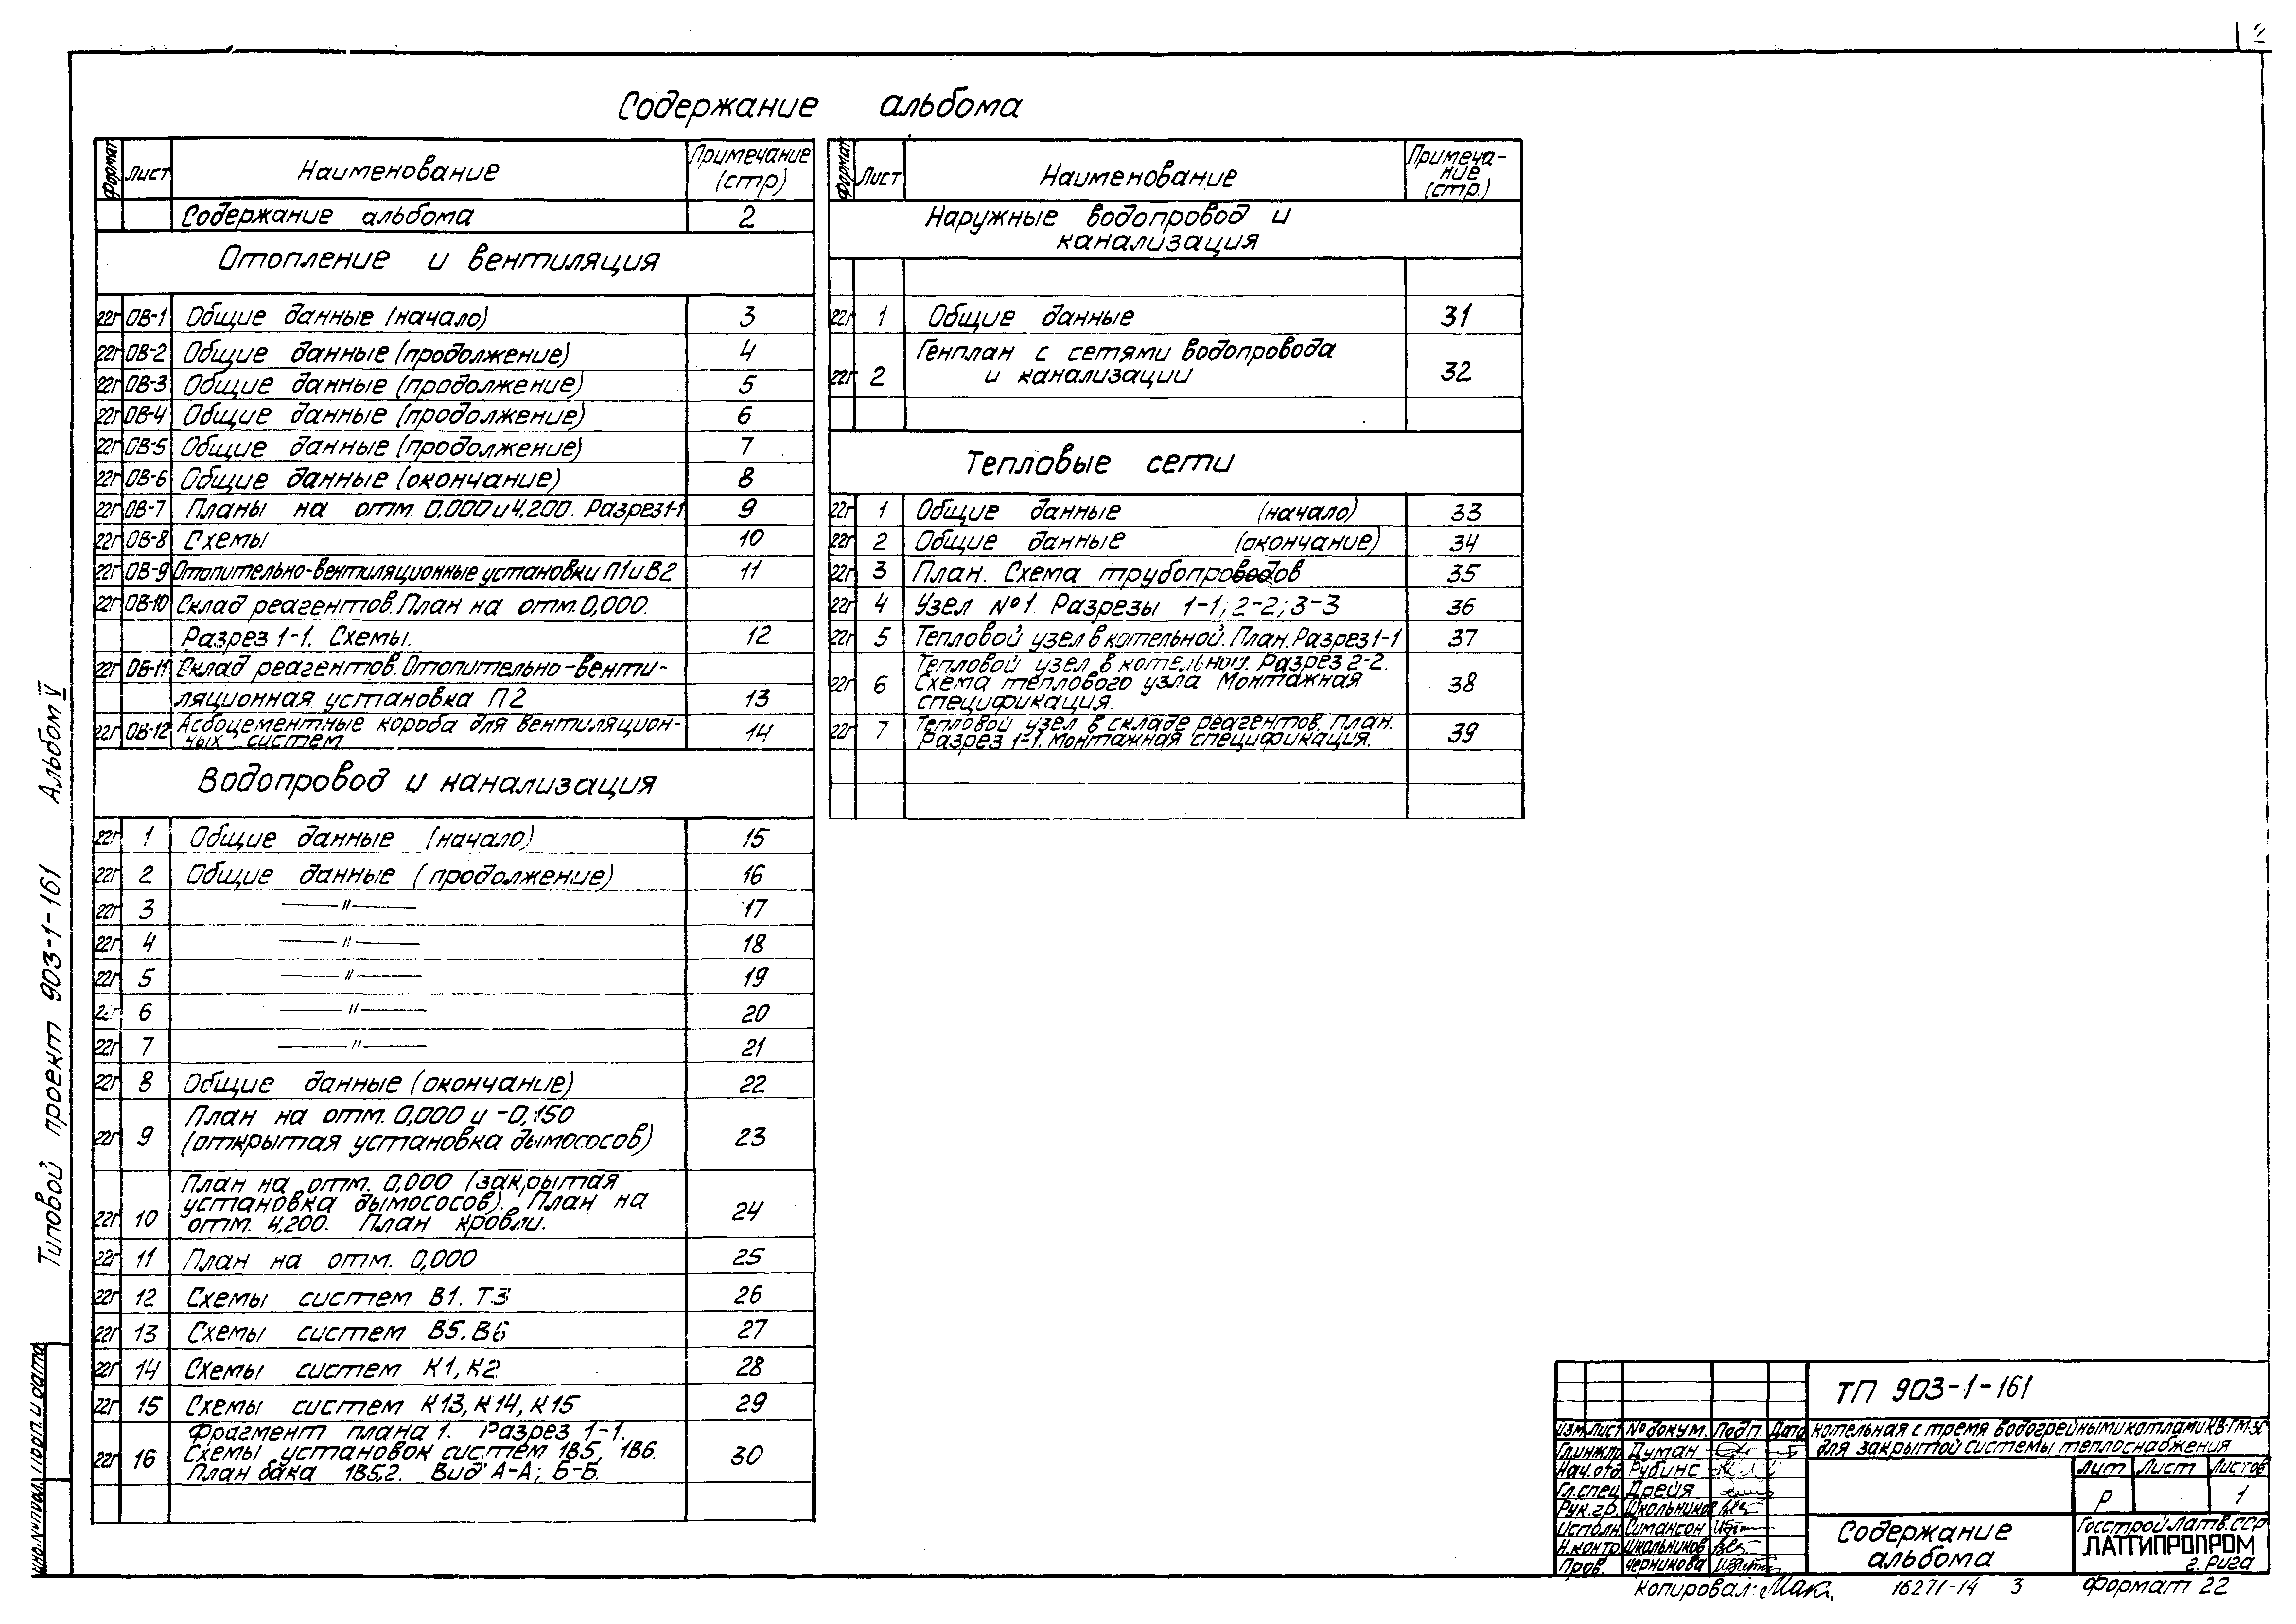 2
Содержание альбома
Формат Лист Наименование Примечание (стр)
Содержание альбома 2
Отопление и вентиляция
22г ОВ-1 Общие данные (начало) 3
22г ОВ-2 Общие данные (продолжение) 4
22г ОВ-3 Общие данные (продолжение) 5
22г ОВ-4 Общие данные (продолжение) 6
22г ОВ-5 Общие данные (продолжение) 7
22г ОВ-6 Общие данные (окончание) 8
22г ОВ-7 Планы на отм. 0,000 и 4,200. Разрез 1-1 9
22г ОВ-8 Схемы 10
22г ОВ-9 Отопительно-вентиляционные установки П1 и В2 11
22г ОВ-10 Склад реагентов. План на отм. 0,000.
Разрез 1-1. Схемы. 12
22г ОВ-11 Склад реагентов. Отопительно-венти-
ляционная установка П2 13
22г ОВ-12 Асбоцементные короба для вентиляцион-
ных систем 14
Водопровод и канализация
22г 1 Общие данные (начало) 15
22г 2 Общие данные (продолжение) 16
22г 3 —"— 17
22г 4 —"— 18
22г 5 —"— 19
22г 6 —"— 20
22г 7 —"— 21
22г 8 Общие данные (окончание) 22
22г 9 План на отм. 0,000 и -0,150
(открытая установка дымососов) 23
22г 10 План на отм. 0,000 (закрытая
установка дымососов). План на
отм. 4,200. План кровли. 24
22г 11 План на отм. 0,000 25
22г 12 Схемы систем В1. Т3 26
22г 13 Схемы систем В5. В6 27
22г 14 Схемы систем К1, К2 28
22г 15 Схемы систем К13, К14, К15 29
22г 16 Фрагмент плана 1. Разрез 1-1.
Схемы установок систем 1В5, 1В6.
План бака 1В5.2. Вид А-А; Б-Б. 30
Формат Лист Наименование Примеча-
ние
(стр.)
Наружные водопровод и
канализация
22г 1 Общие данные 31
22г 2 Генплан с сетями водопровода
и канализации 32
Тепловые сети
22г 1 Общие данные (начало) 33
22г 2 Общие данные (окончание) 34
22г 3 План. Схема трубопроводов 35
22г 4 Узел №1. Разрезы 1-1; 2-2; 3-3 36
22г 5 Тепловой узел в котельной. План. Разрез 1-1 37
22г 6 Тепловой узел в котельной. Разрез 2-2.
Схема теплового узла Монтажная
спецификация. 38
22г 7 Тепловой узел в складе реагентов. План.
Разрез 1-1. Монтажная спецификация. 39
Типовой проект 903-1-161 Альбом V
Инв.№ подл. Подп. и дата
ТП 903-1-161
Изм Лист № докум. Подп. Дата
Котельная с тремя водогрейными котлами КВ-ГМ-30
для закрытой системы теплоснабжения
Гл.инж.пр. Думан
Нач.отд. Рубинс
Гл.спец. Дрейя
Рук.гр. Школьников
Исполн. Симансон
Н.контр. Школьников
Пров. Черникова
Лит Лист Листов
Р 1
Содержание
альбома
Госстрой Латв.ССР
ЛАТГИПРОПРОМ
г. Рига
Копировал: 16271-14 3 Формат 22